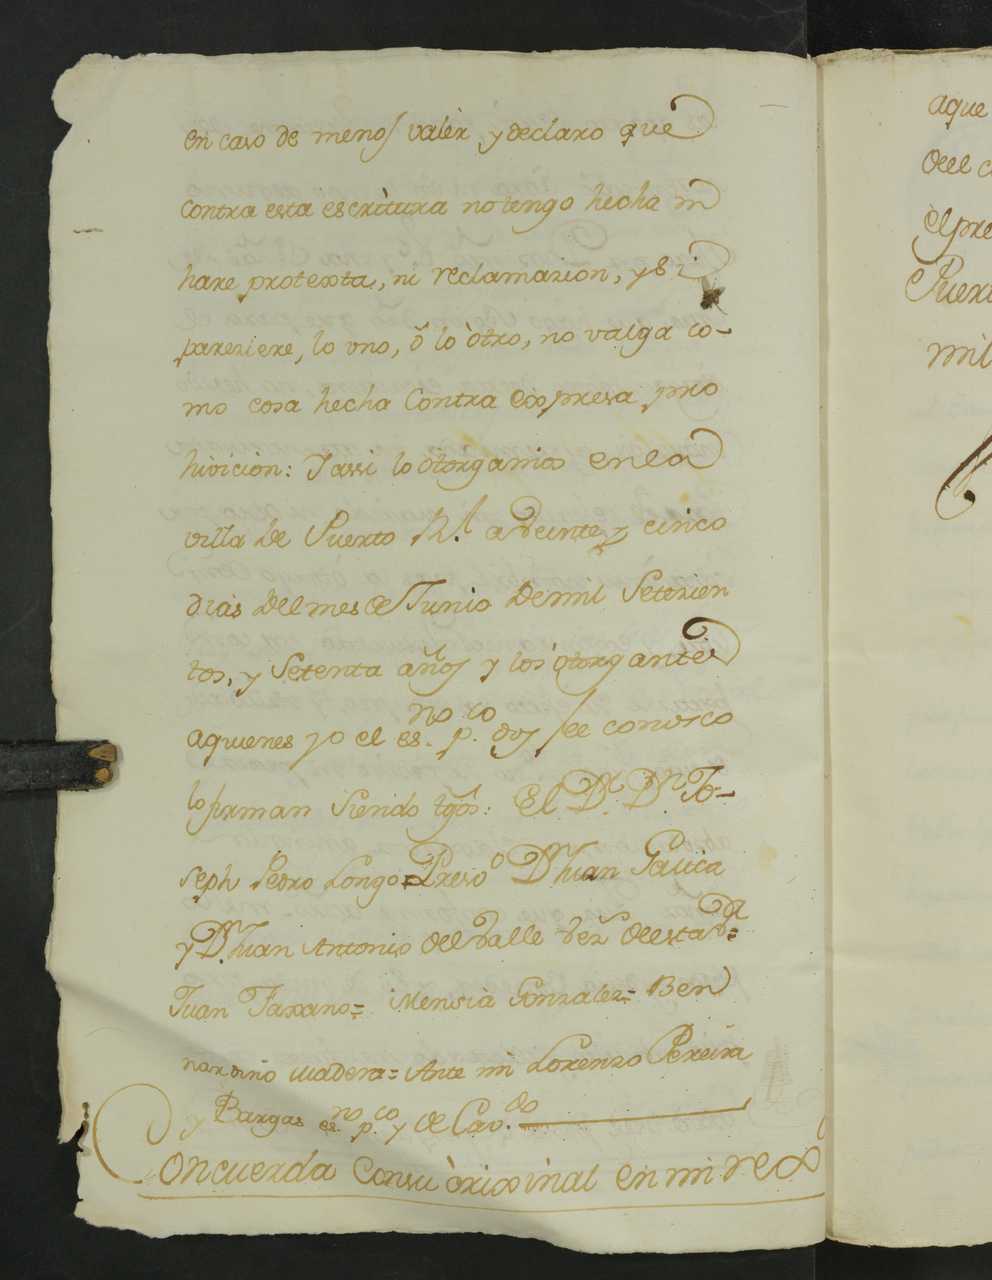 en caso de menos valer, y declaro que
contra esta escritura no tengo hecha ni
hare protexta, ni reclamazion, y si
pareziere, lo uno, ò lo otro, no valga co-
mo cosa hecha Contra expresa pro
hivicion: Y assi lo otorgamos en la
villa de Puerto Rl. a veinte y cinco
dias del mes de Junio de mil Setezien
tos, y Setenta años y los otorgantes
aquienes yo el esno. pco. doy fee conosco
lo firman siendo tgos: El Dr. Dn. Jo-
seph Pedro Longo Presvo Dn Juan
y Dn. Juan Antonio del Valle vez. de esta va=
Juan = Mensia Gonzalez= Ber
nardino Madera= Ante mi Lorenzo Pereira
y Bargas esno. pco. y de Cavdo.
Concuerda Con su òrixinal en mi rex
aque
del c
el pre
Puert
mil